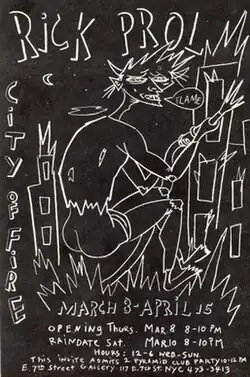 RICK PROL
CITY OF FIRE
FLAME
MARCH 8-APRIL 15
OPENING THURS. MAR 8 8-10 PM
RAINDATE SAT. MAR 10 8-10 PM
HOURS: 12-6 WED-SUN
THIS INVITE ADMITS 2 PYRAMID CLUB PARTY 10-12 PM
E. 7TH STREET GALLERY 117 E. 7TH ST. NYC 473-3413